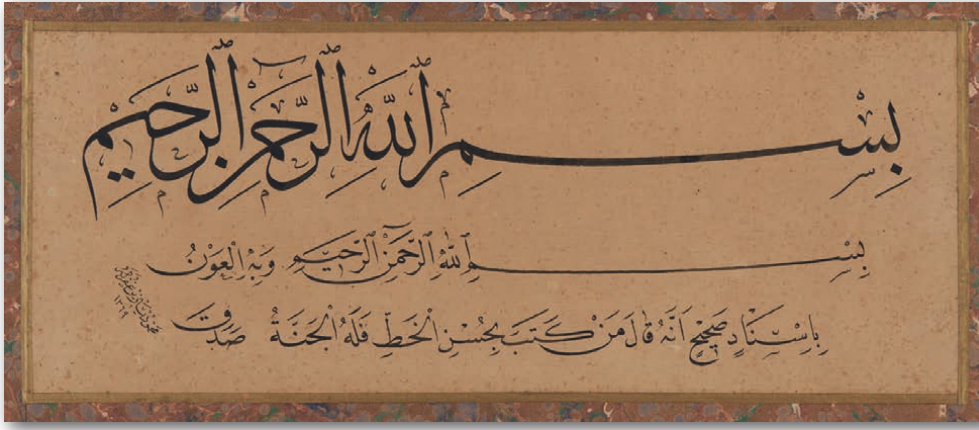 بِسْمِ اللّٰهِ الرَّحْمٰنِ الرَّحِيمِ
بِسْمِ اللّٰهِ الرَّحْمٰنِ الرَّحِيمِ وَبِهِ الْعَوْنُ
بِاِسْنَادٍ صَحِيحٍ اَنَّهُ قَالَ مَنْ كَتَبَ بِحُسْنِ الْخَطِّ فَلَهُ الْجَنَّةُ صَدَقَ
١٣٦٩